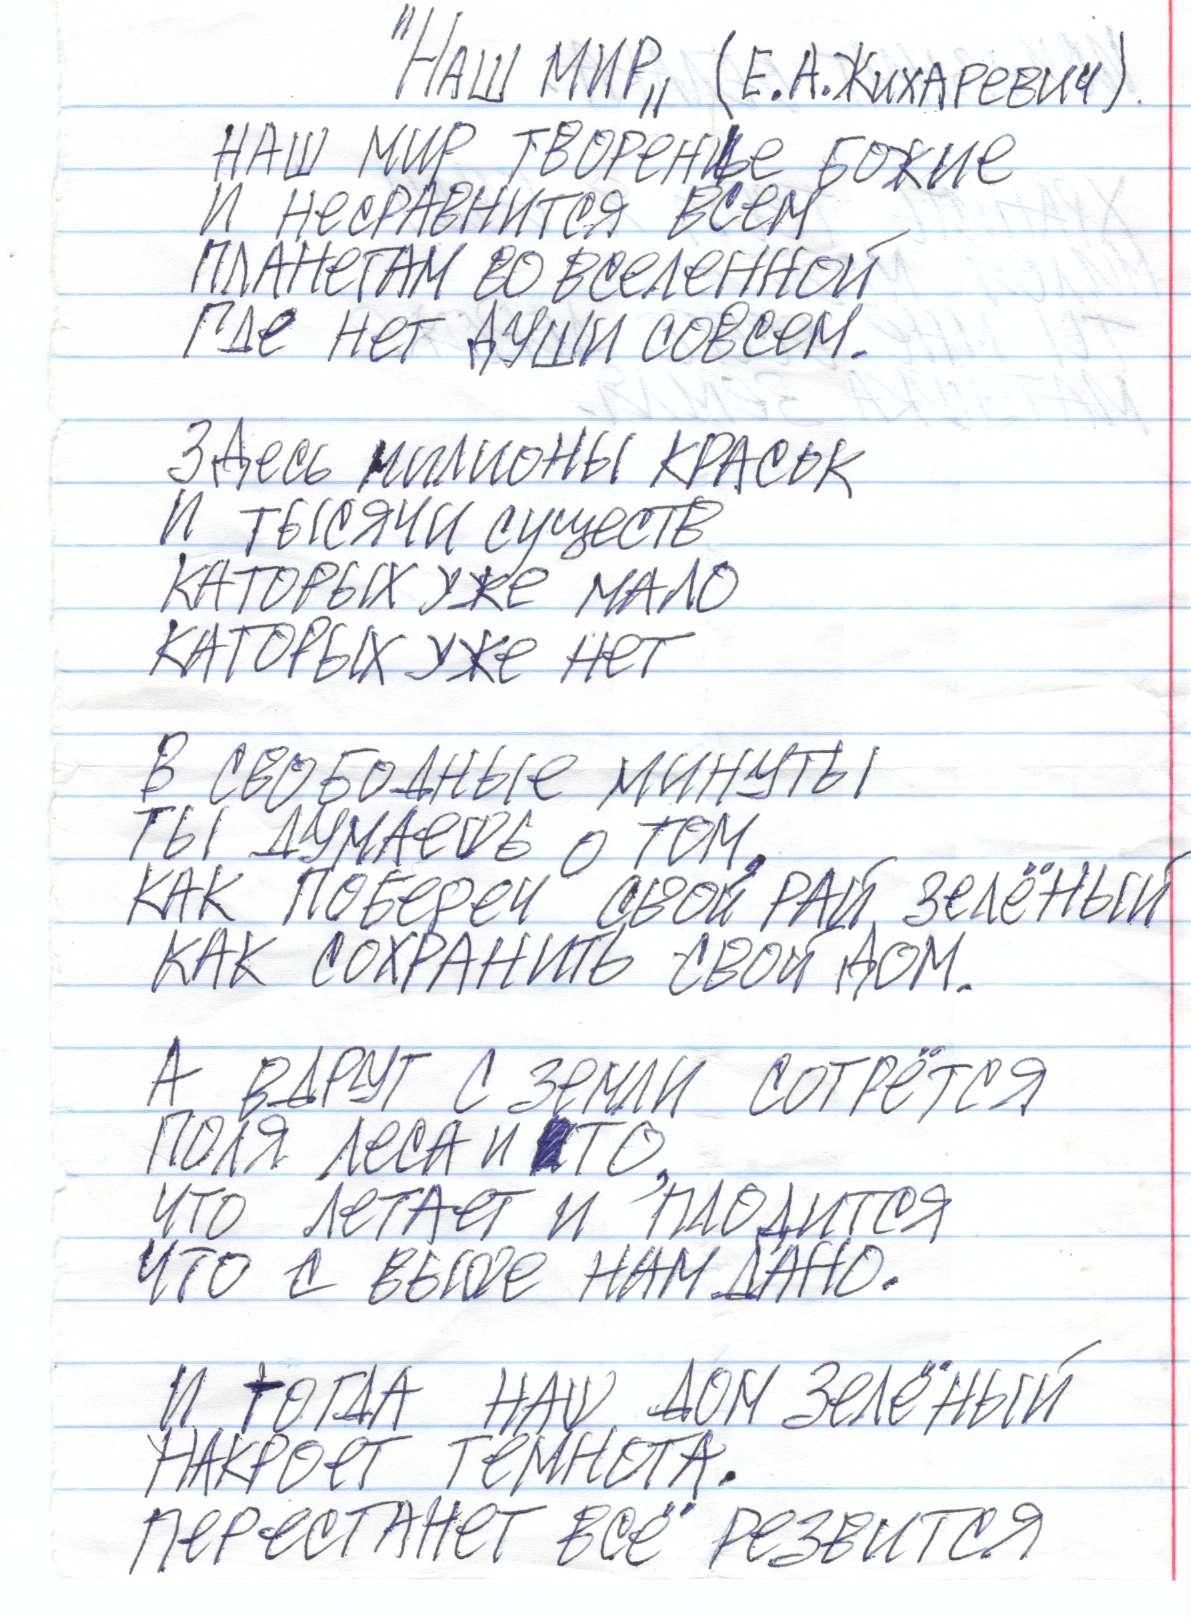 "Наш мир„ (Е.А.Жихаревич).
Наш мир творенье Божие
И несравнится всем
Планетам во вселенной
Где нет души совсем.
Здесь милионы красък
И тысячи существ
Каторых уже мало
Каторых уже нет
В свободные минуты
Ты думаешь о том,
Как поберечь свой рай зелёный
Как сохранить свой дом.
А вдруг с земли сотрётся
Поля леса и то,
Что летает и плодится
Что с выше нам дано.
И тогда наш дом зелёный
Накроет темнота.
Перестанет всё резвится